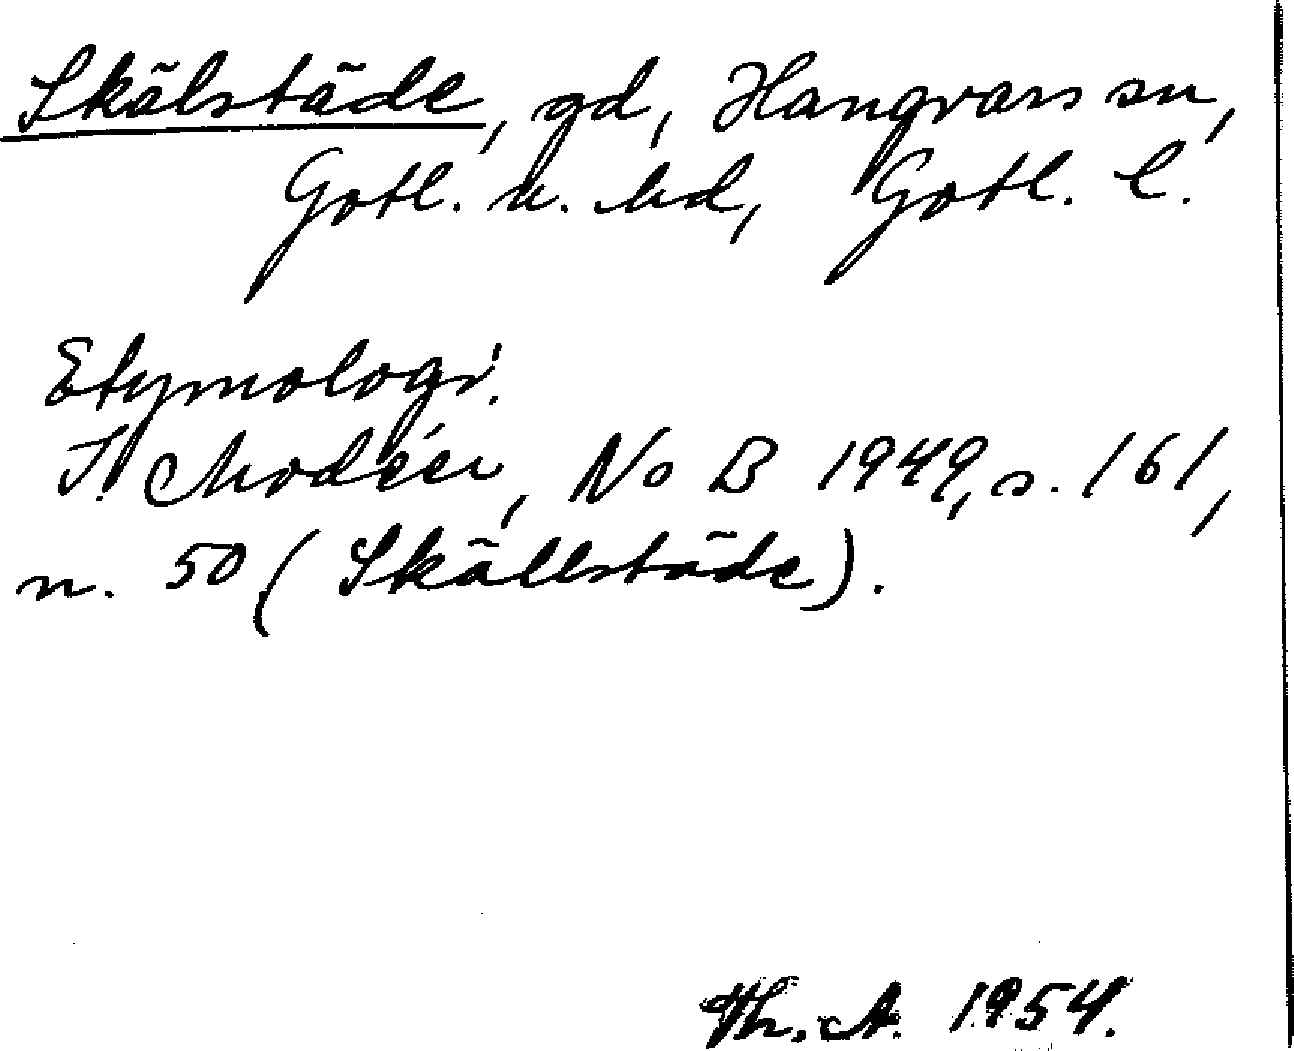 Skälstäde, gd, Hangvars sn,
Gotl. n. hd, Gotl. l.
Etymologi.
I. Modéer, NoB 1949, s. 161,
n. 50 (Skällstäde).
Th. A. 1954.